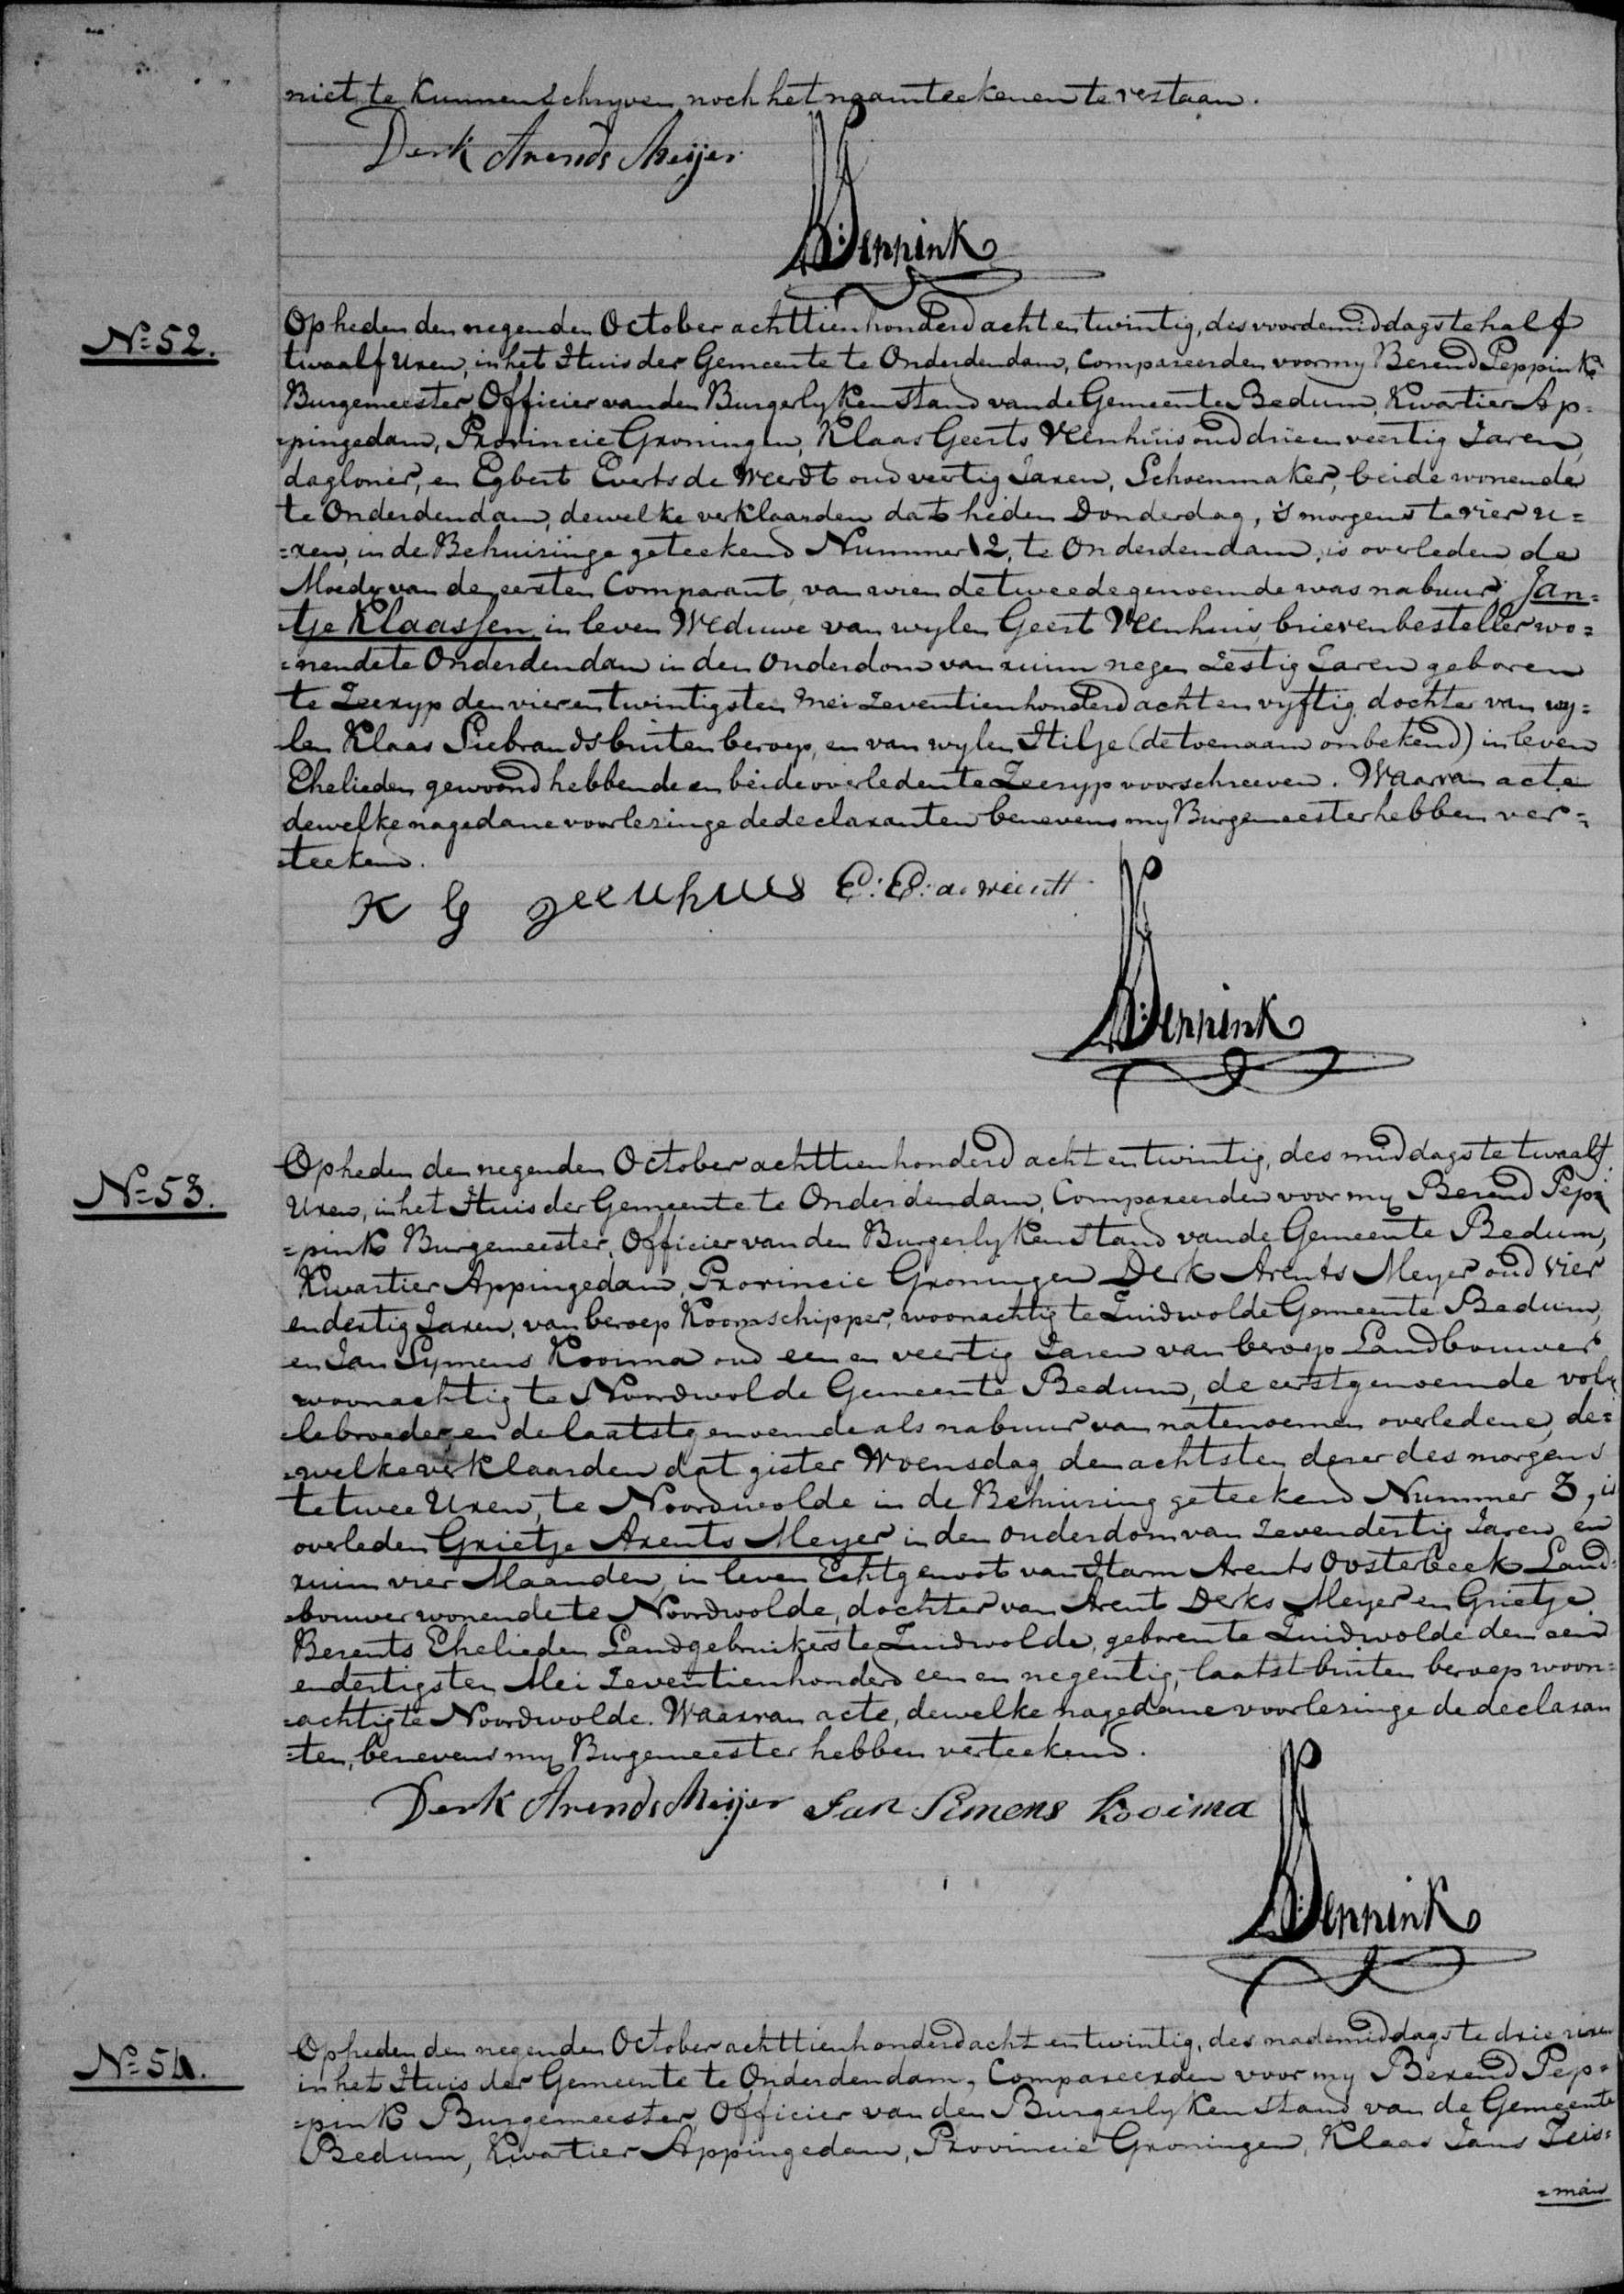 niet te kunnen schryven noch het naamteekenen te verstaan.
Derk Arends Meijer
B: Peppink
No 52.
Op heden den negenden October achttienhonderd acht en twintig, des voordemiddags te half
twaalf Uren, in het Huis der Gemeente te Onderdendam, Compareerden voor my Berend Peppink
Burgemeester, Officier van den Burgerlyken Stand van de Gemeente Bedum, Kwartier Ap=
=pingedam, Provincie Groningen, Klaas Geerts Veenhuis oud drie en veertig Jaren,
dagloner, en Egbert Everts de Weerdt oud veertig Jaren, Schoenmaker, beide wonende
te Onderdendam, dewelke verklaarden dat heden Donderdag, 's morgens te vier u=
=ren, in de Behuisinge geteekend Nummer 12, te Onderdendam, is overleden de
Moeder van de eersten Comparant, van wien de tweedegenoemde was nabuur, Jan=
=tje Klaassen in leven Weduwe van wylen Geert Veenhuis, brievenbesteller wo=
=nende te Onderdendam in den Ouderdom van ruim negen Zestig Jaren geboren
te Zeeryp den vier en twintigsten Mei Zeventienhonderd acht en vyftig dochter van wy=
len Klaas Siebrands buiten beroep, en van wylen Hilje (de toenaam onbekend) in leven
Ehelieden gewoond hebbende en beide overleden te Zeeryp voorschreeven. Waarvan acte
dewelke na gedane voorlezinge de declaranten benevens my Burgemeester hebben ver=
=teekend.
K G Veenhuis E: E: de Weerdt
B: Peppink
No 53.
Op heden den negenden October achttienhonderd acht en twintig, des middags te twaalf
Uren, in het Huis der Gemeente te Onderdendam, Compareerden voor my Berend Pep=
=pink Burgemeester, Officier van den Burgerlyken Stand van de Gemeente Bedum,
Kwartier Appingedam, Provincie Groningen Derk Arents Meyer oud vier
en dertig Jaren, van beroep Koornschipper, woonachtig te Zuidwolde Gemeente Bedum,
en Jan Symens Kooima oud een en veertig Jaren van beroep Landbouwer
woonachtig te Noordwolde Gemeente Bedum, de eerstgenoemde vol=
=le broeder, en de laatstgenoemde als nabuur van natenoemen overledene, de=
=welke verklaarden dat gister Woensdag den achtsten dezer des morgens
te twee Uren, te Noordwolde in de Behuising geteekend Nummer 3, is
overleden Grietje Arents Meyer in den ouderdom van Zevendertig Jaren en
ruim vier Maanden, in leven Echtgenoot van Harm Arents Oosterbeek Land=
=bouwer wonende te Noordwolde, dochter van Arent Derks Meyer en Grietje
Berents Ehelieden Landgebruikers te Zuidwolde, geboren te Zuidwolde den een
en dertigsten Mei Zeventienhonderd een en negentig, laatst buiten beroep woon=
=achtig te Noordwolde. Waarvan acte, dewelke na gedane voorlezinge de declaran
=ten, benevens my Burgemeester hebben verteekend.
Derk Arends Meijer Jan Simens Kooima
B: Peppink
No 54.
Op heden den negenden October achttienhonderd acht en twintig, des nademiddags te drie uren
in het Huis der Gemeente te Onderdendam, Compareerden voor my Berend Pep=
=pink Burgemeester Officier van den Burgerlyken Stand van de Gemeente
Bedum, Kwartier Appingedam, Provincie Groningen, Klaas Jans Zeis=
=man